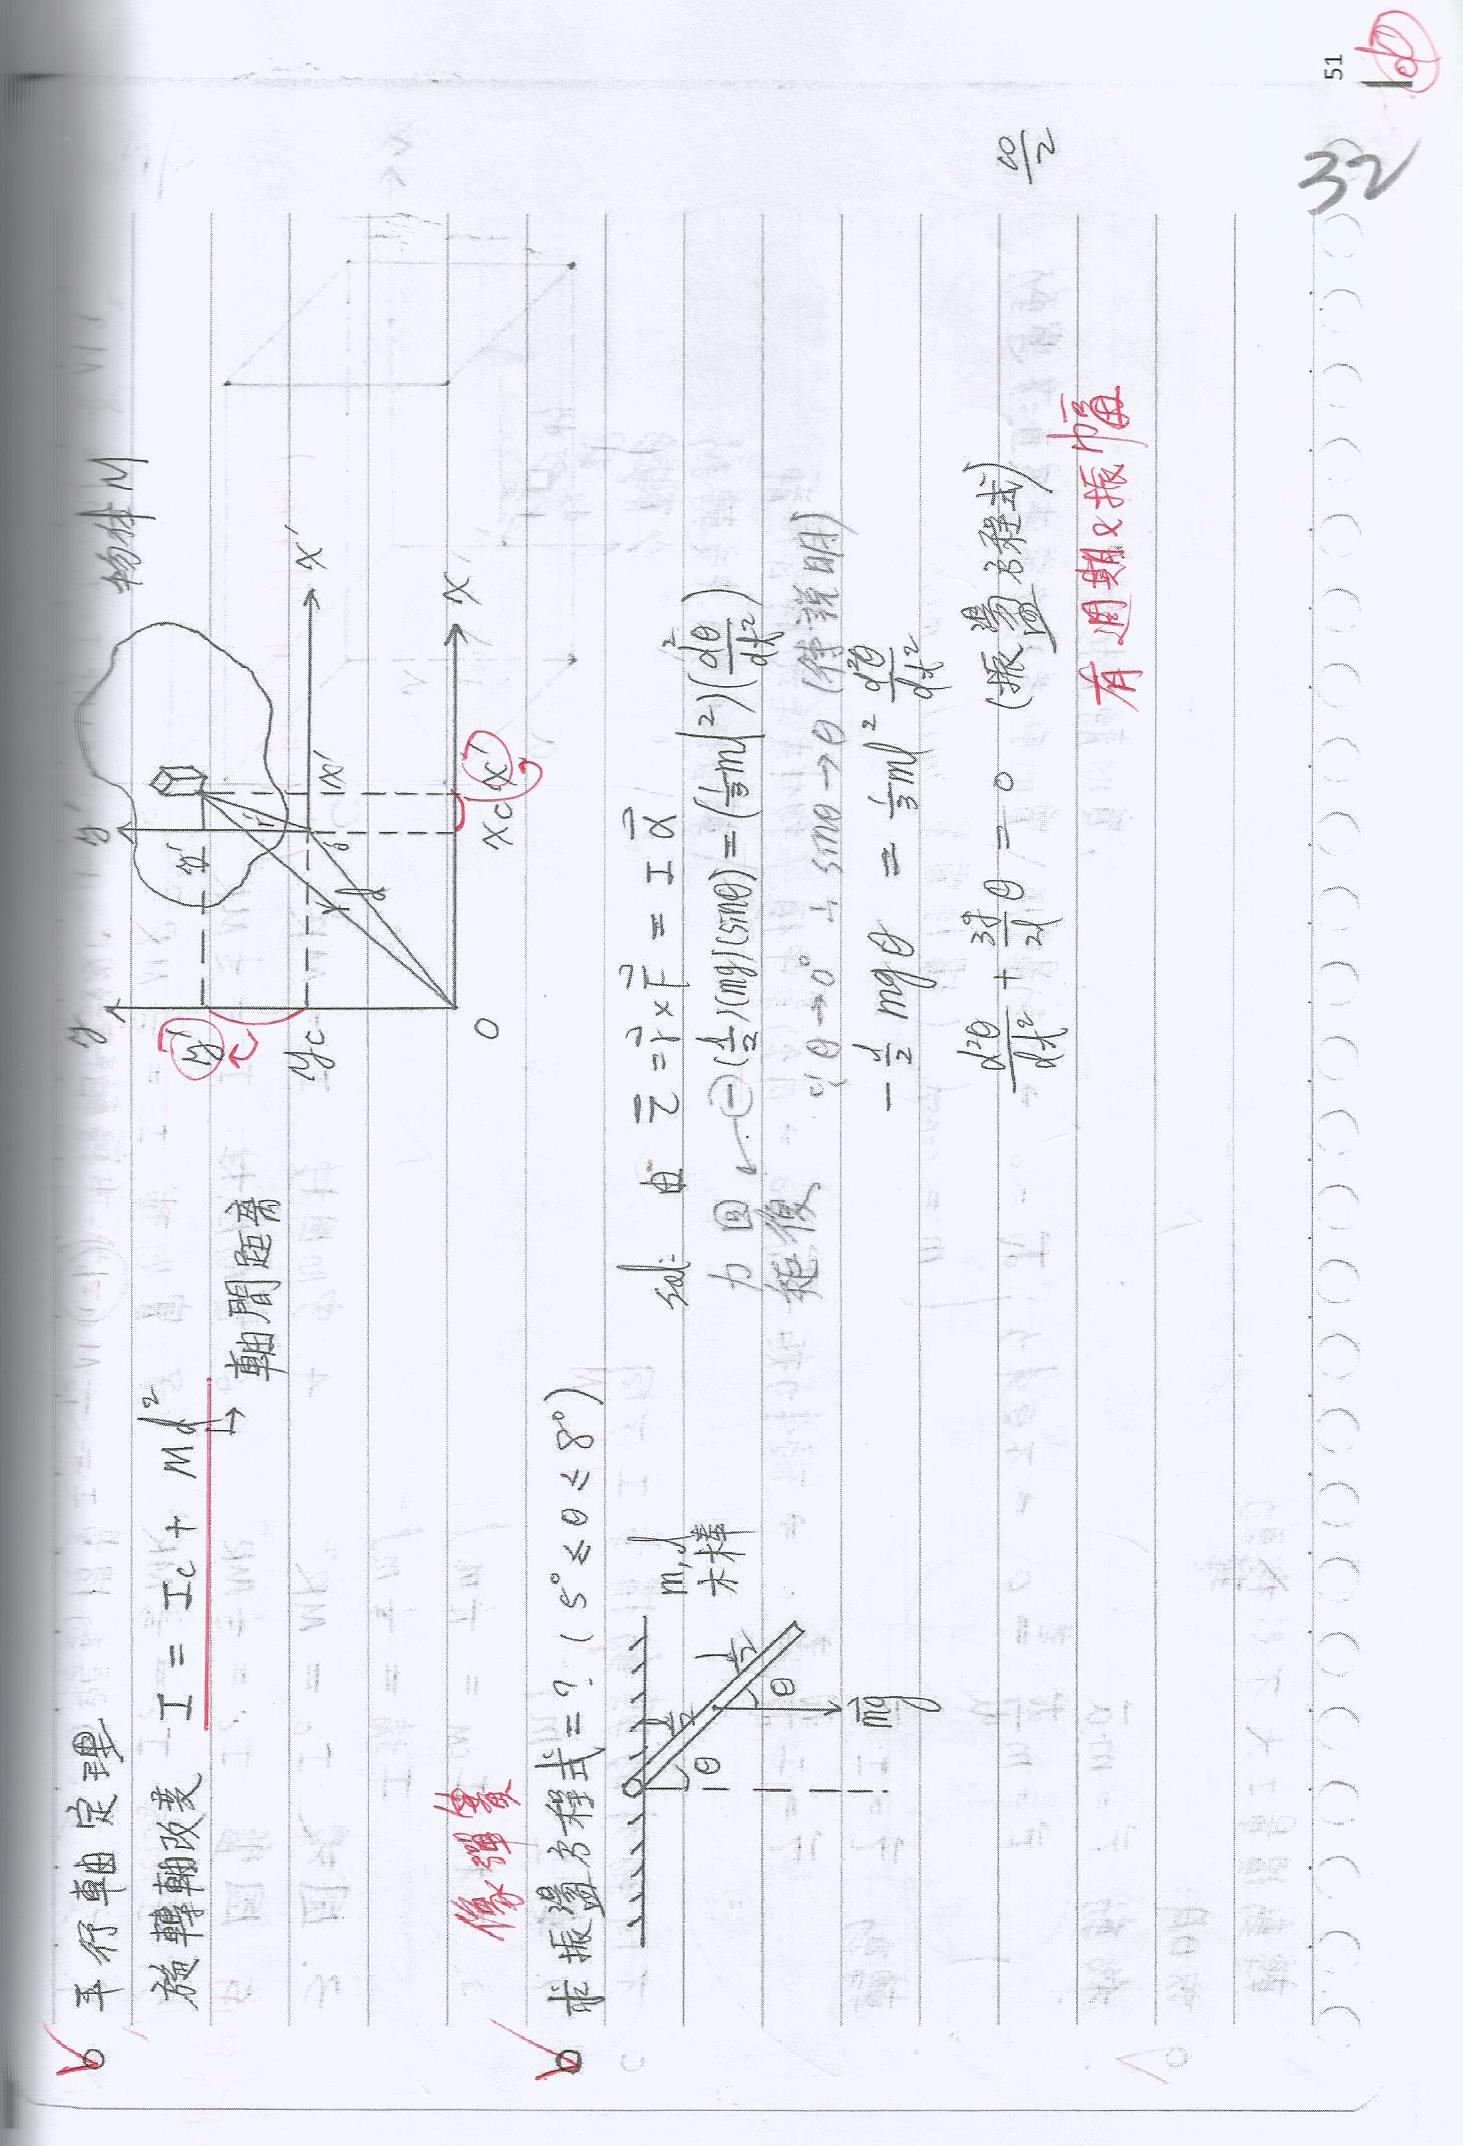 51
32
平行軸定理
旋轉軸改變 I = Ic + Md²
軸間距離
物体M
y
y'
y'
yc
y'
r'
r
d
o'
x'
x'
O
xc
x'
x
像彈簧
求振盪方程式=? (5° ≤ θ ≤ 8°)
m, l
木棒
l/2
l/2
θ
θ
mg
sol: 由 τ = r × F = I α
力矩 回復 ← (−) (l/2)(mg)(sinθ) = (1/3 ml²)(d²θ/dt²)
∵ θ→0° ∴ sinθ→θ (待說明)
−l/2 mgθ = 1/3 ml² d²θ/dt²
d²θ/dt² + 3g/2l θ = 0 (振盪方程式)
有週期&振幅